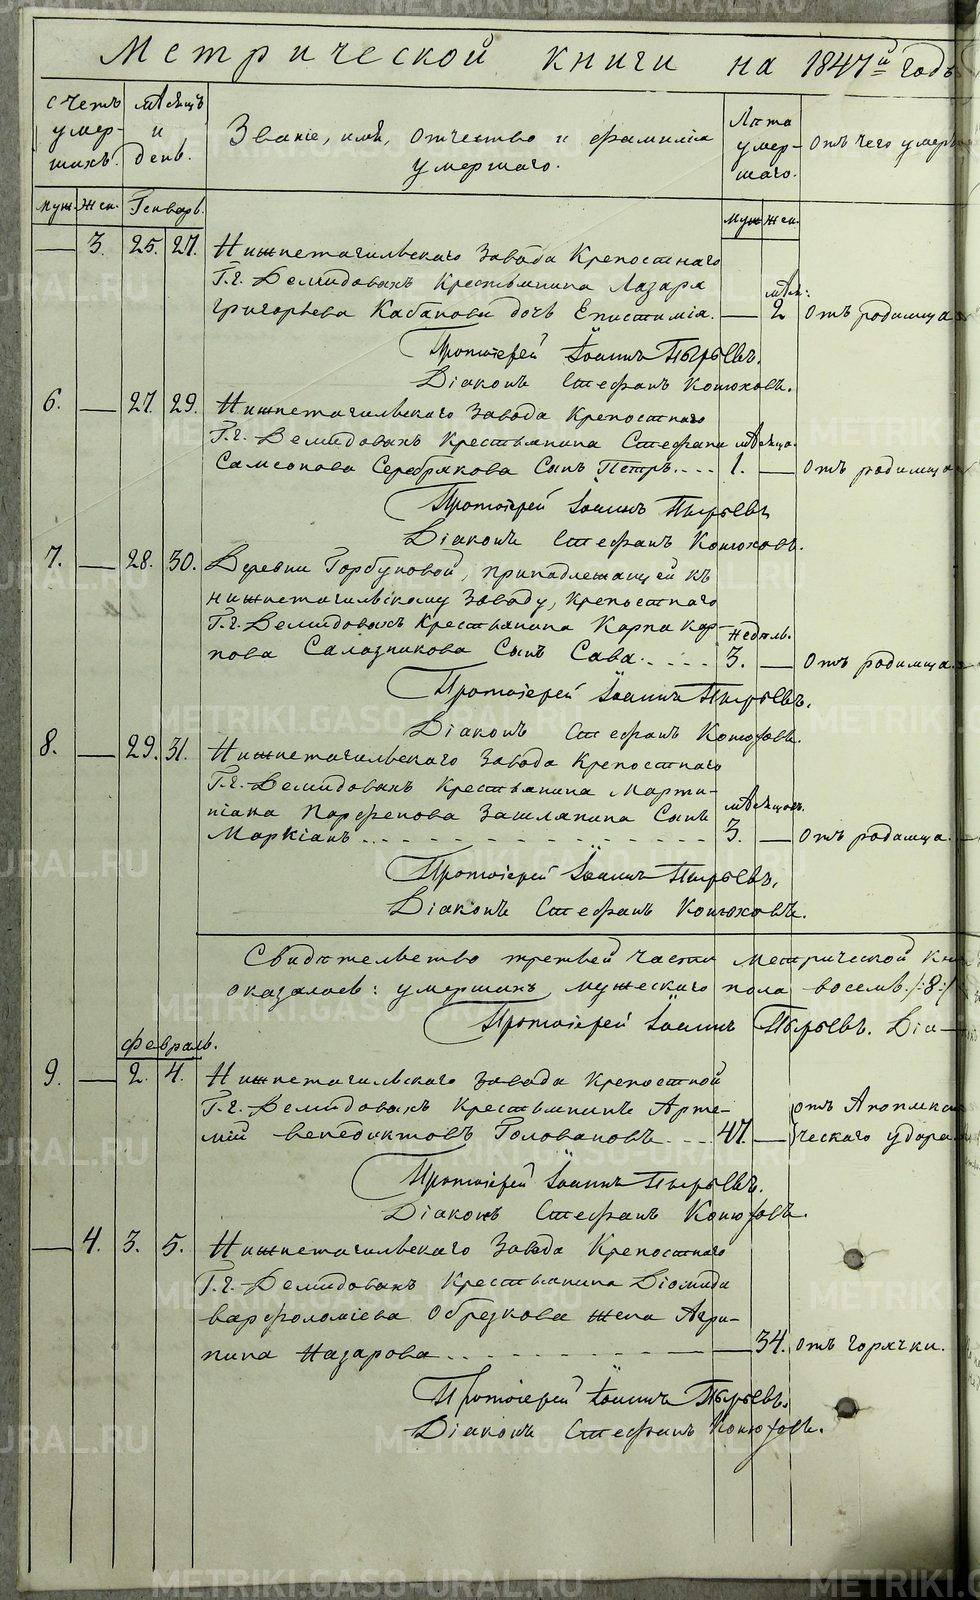 Метрической книги на 1847й годъ
Счетъ умер- шихъ.
мѣсяцъ и день.
Званіе, имя, отчество и фамилія умершаго.
Лѣта умер- шаго.
Отъ чего умеръ
Муж. Жен. Генварь.
Муж Жен.
— 3. 25. 27. Нижнетагильскаго Завода Крепостнаго
Г.г. Демидовыхъ Крестьянина Лазаря мѣс:
Григорьева Кабанова дочь Епистимія. — 2 Отъ родимца
Протоіерей Іоаннъ Пырьевъ.
Діаконъ Стефанъ Конюховъ.
6. — 27. 29. Нижнетагильскаго Завода Крепостнаго
Г.г. Демидовыхъ Крестьянина Стефана мѣсяца.
Самсонова Серебрякова Сынъ Петръ. 1. — Отъ родимца
Протоіерей Іоаннъ Пырьевъ
Діаконъ Стефанъ Конюховъ.
7. — 28. 30. Деревни Горбуновой, принадлежащей къ
нижнетагильскому Заводу, Крепостнаго
Г.г. Демидовыхъ Крестьянина Карпа Кар- недѣль.
пова Салазникова Сынъ Сава. 3. — Отъ родимца.
Протоіерей Іоаннъ Пырьевъ.
Діаконъ Стефанъ Конюховъ.
8. — 29. 31. Нижнетагильскаго Завода Крепостнаго
Г.г. Демидовыхъ Крестьянина Марти-
ніана Парфенова Зашляпина Сынъ мѣсяцовъ.
Маркіанъ 3. — Отъ родимца.
Протоіерей Іоаннъ Пырьевъ,
Діаконъ Стефанъ Конюховъ.
Свидѣтельство третьей части метрической кни
оказалось: умершихъ мужескаго пола восемь /:8:/
Протоіерей Іоаннъ Пырьевъ. Діа-
Февраль.
9. — 2. 4. Нижнетагильскаго завода крепостной
Г.г. Демидовыхъ крестьянинъ Арте- отъ Апоплекси
мій венедиктовъ Головановъ 47. — ческаго удара.
Протоіерей Іоаннъ Пырьевъ.
Діаконъ Стефанъ Конюховъ.
— 4. 3. 5. Нижнетагильскаго Завода Крепостнаго
Г.г. Демидовыхъ Крестьянина Діомида
варфоломіева Обрезкова жена Агри-
пина Назарова — 34. отъ горячки.
Протоіерей Іоаннъ Пырьевъ.
Діаконъ Стефанъ Конюховъ.
METRIKI.GASO-URAL.RU